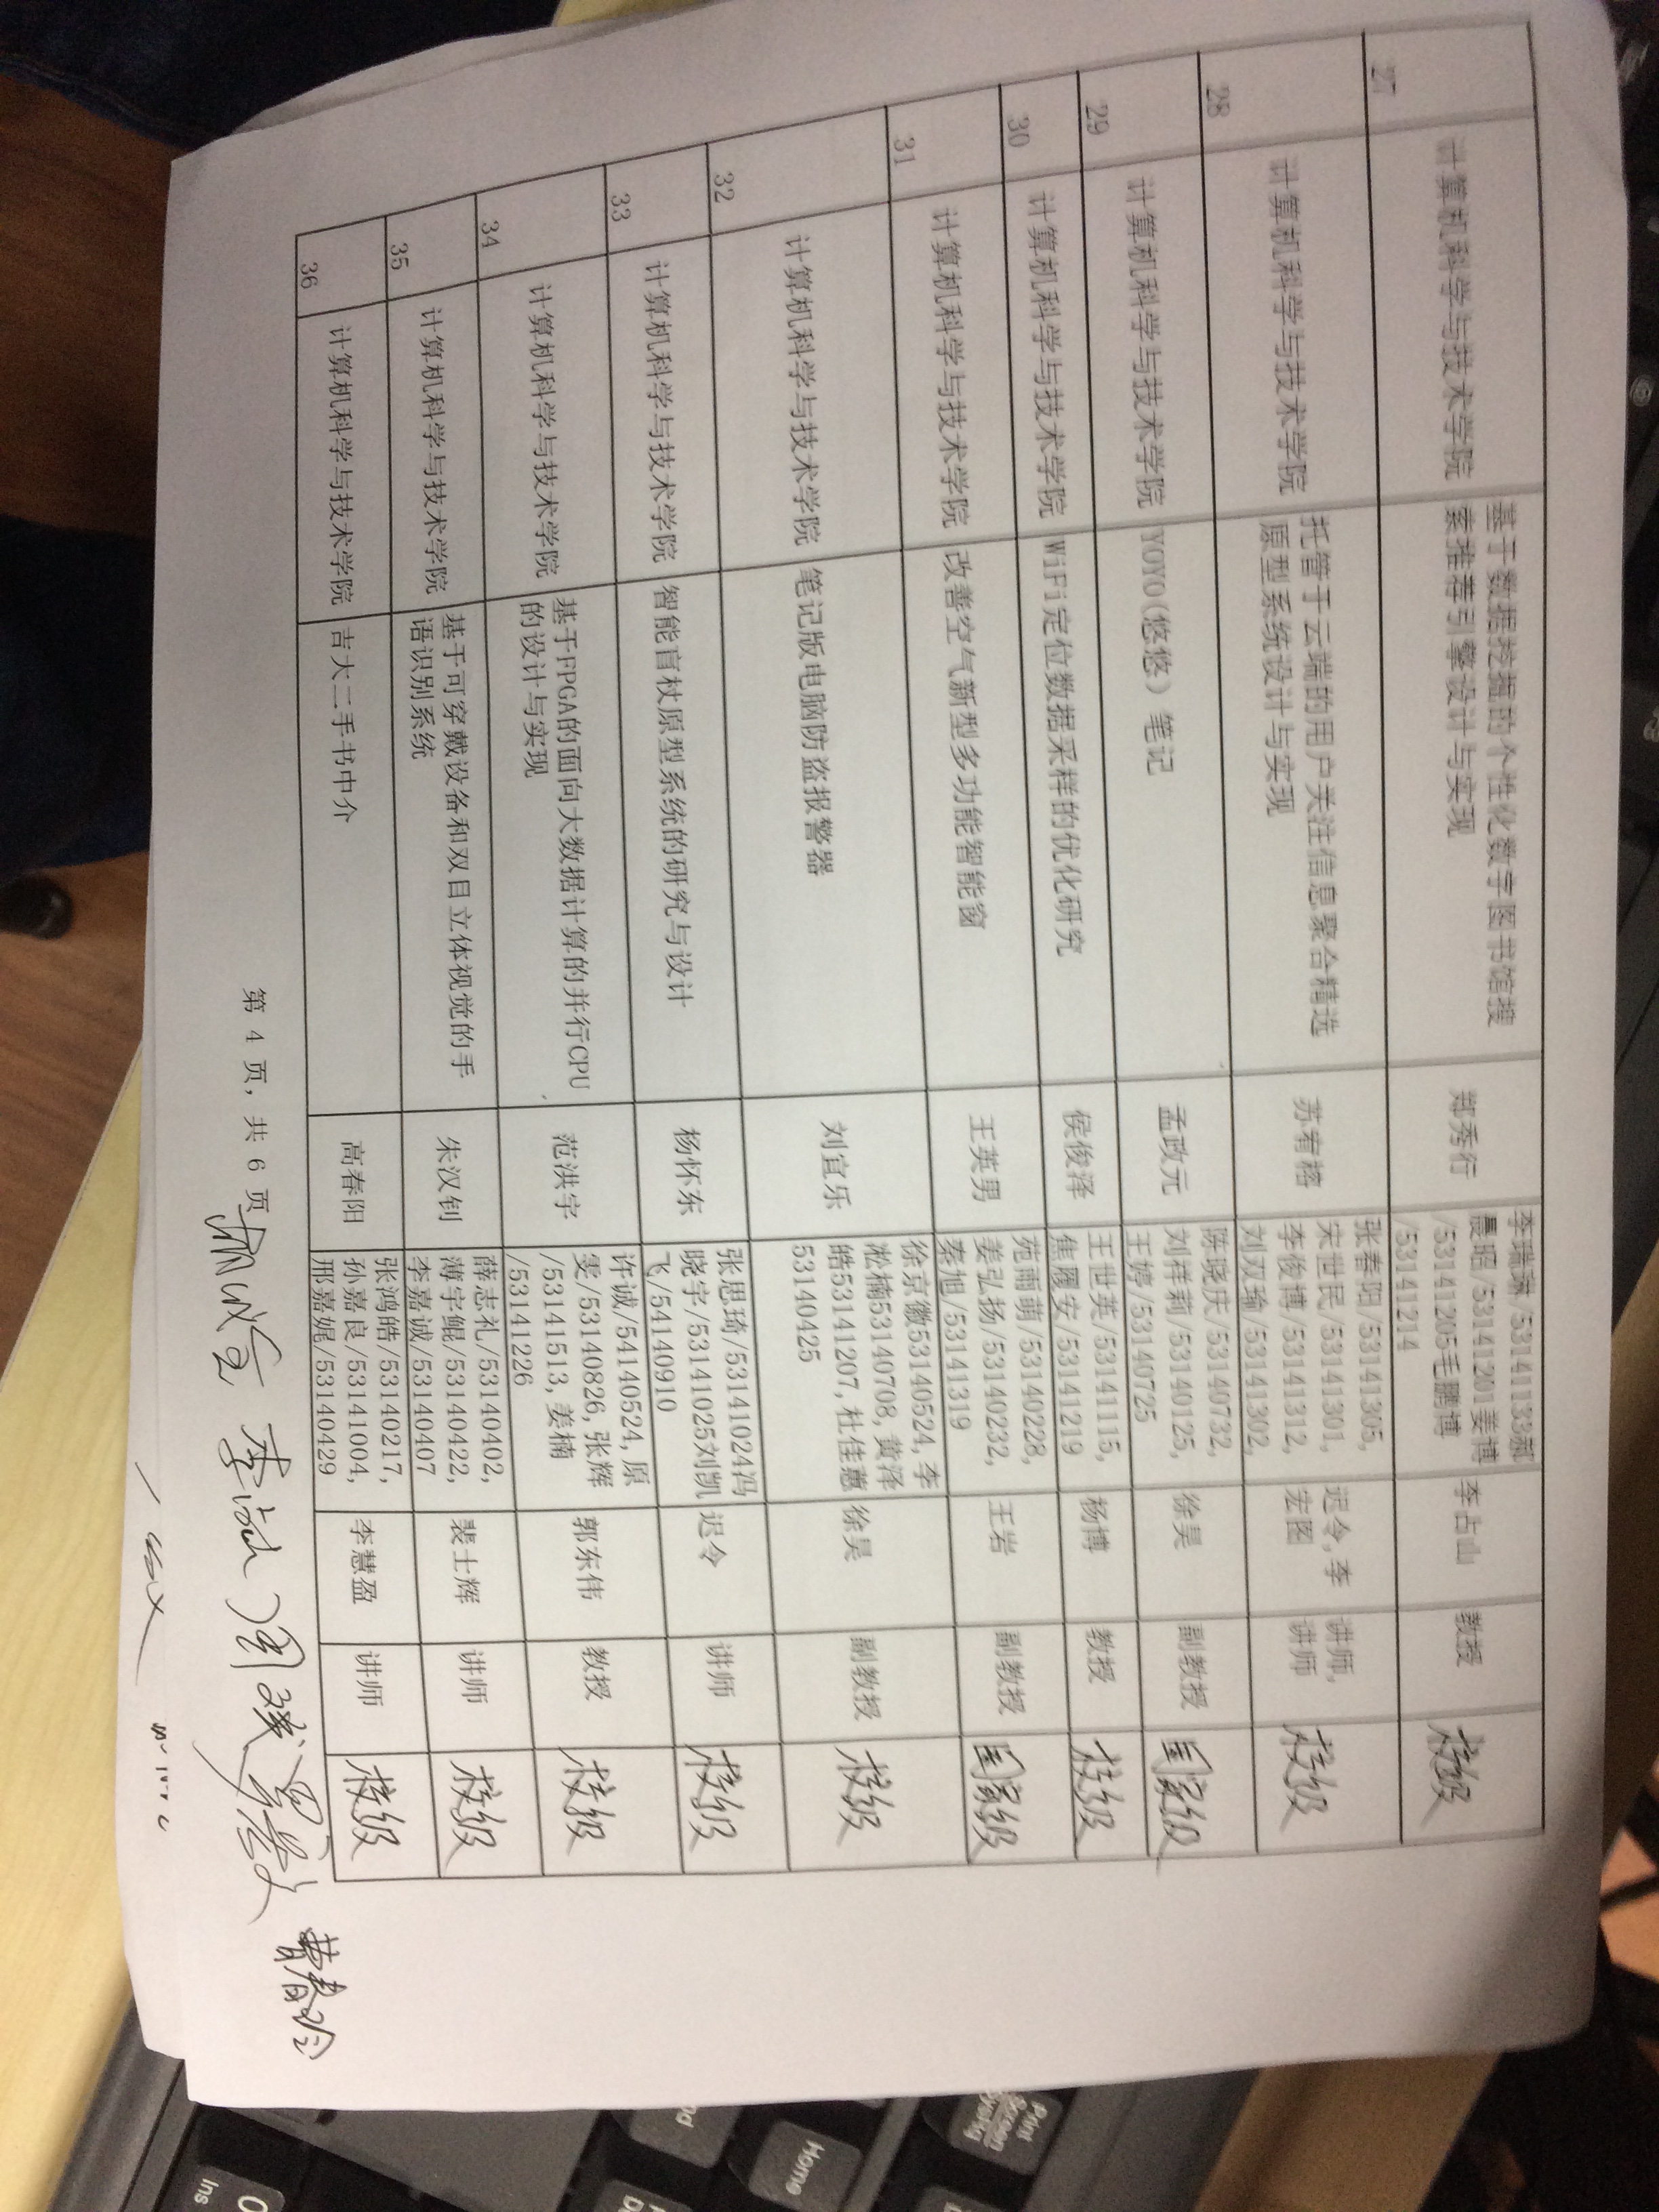 27 计算机科学与技术学院 基于数据挖掘的个性化数字图书馆搜
索推荐引擎设计与实现 郑秀行 李瑞琳/53141133郝
晨昭/53141201姜博
/53141205毛鹏博
/53141214 李占山 教授 校级
28 计算机科学与技术学院 托管于云端的用户关注信息聚合精选
原型系统设计与实现 苏宥榕 张春阳/53141305,
宋世民/53141301,
李俊博/53141312,
刘双瑜/53141302, 迟令,李
宏图 讲师,
讲师 校级
29 计算机科学与技术学院 YOYO(悠悠）笔记 孟政元 陈晓庆/53140732,
刘祥莉/53140125,
王婷/53140725 徐昊 副教授 国家级
30 计算机科学与技术学院 WiFi定位数据采样的优化研究 侯俊泽 王世英/53141115,
焦履安/53141219 杨博 教授 校级
31 计算机科学与技术学院 改善空气新型多功能智能窗 王英男 苑雨萌/53140228,
姜弘扬/53140232,
秦旭/53141319 王岩 副教授 国家级
32 计算机科学与技术学院 笔记版电脑防盗报警器 刘宜乐 徐京徽53140524,李
凇楠53140708,黄泽
皓53141207,杜佳蕙
53140425 徐昊 副教授 校级
33 计算机科学与技术学院 智能盲杖原型系统的研究与设计 杨怀东 张思琦/53141024冯
晓宇/53141025刘凯
飞/54140910 迟令 讲师 校级
34 计算机科学与技术学院 基于FPGA的面向大数据计算的并行CPU
的设计与实现 范洪宇 许诚/54140524,原
雯/53140826,张辉
/53141513,姜楠
/53141226 郭东伟 教授 校级
35 计算机科学与技术学院 基于可穿戴设备和双目立体视觉的手
语识别系统 朱汉钊 薛志礼/53140402,
薄宇鲲/53140422,
李嘉诚/53140407 裴士辉 讲师 校级
36 计算机科学与技术学院 吉大二手书中介 高春阳 张鸿皓/53140217,
孙嘉良/53141004,
邢嘉娓/53140429 李慧盈 讲师 校级
第 4 页, 共 6 页
李占山 曹春玲
Print
Screen
SysRq
Home
Ins